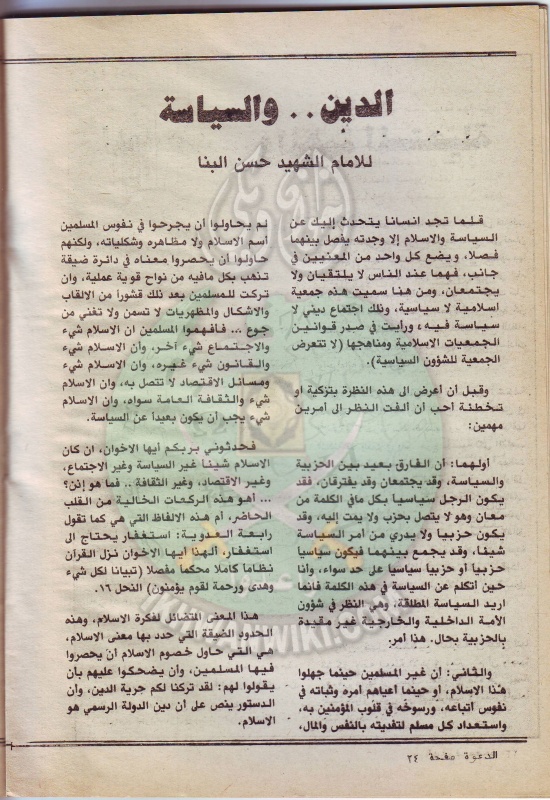 الدين . . والسياسة
للامام الشهيد حسن البنا
قلما تجد انسانا يتحدث إليك عن
السياسة والاسلام إلا وجدته يفصل بينهما
فصلا، ويضع كل واحد من المعنيين في
جانب، فهما عند الناس لا يلتقيان ولا
يجتمعان، ومن هنا سميت هذه جمعية
اسلامية لا سياسية، وذلك اجتماع ديني لا
سياسة فيه، ورأيت في صدر قوانين
الجمعيات الاسلامية ومناهجها (لا تتعرض
الجمعية للشؤون السياسية).
وقبل أن أعرض الى هذه النظرة بتزكية أو
تخطئة أحب أن ألفت النظر الى أمرين
مهمين:
أولهما: أن الفارق بعيد بين الحزبية
والسياسة، وقد يجتمعان وقد يفترقان، فقد
يكون الرجل سياسيا بكل مافي الكلمة من
معان وهو لا يتصل بحزب ولا يمت إليه، وقد
يكون حزبياً ولا يدري من أمر السياسة
شيئا، وقد يجمع بينهما فيكون سياسيا
حزبياً أو حزبياً سياسيا على حد سواء، وأنا
حين أتكلم عن السياسة في هذه الكلمة فانما
اريد السياسة المطلقة، وهي النظر في شؤون
الأمة الداخلية والخارجية غير مقيدة
بالحزبية بحال. هذا أمر.
والثاني: أن غير المسلمين حينما جهلوا
هذا الاسلام، أو حينما أعياهم امره وثباته في
نفوس أتباعه، ورسوخه في قلوب المؤمنين به،
واستعداد كل مسلم لتفديته بالنفس والمال،
لم يحاولوا أن يجرحوا في نفوس المسلمين
أسم الاسلام ولا مظاهره وشكلياته، ولكنهم
حاولوا أن يحصروا معناه في دائرة ضيقة
تذهب بكل مافيه من نواح قوية عملية، وان
تركت للمسلمين بعد ذلك قشورا من الالقاب
والاشكال والمظهريات لا تسمن ولا تغني من
جوع ... فأفهموا المسلمين ان الاسلام شيء
والاجتماع شيء آخر، وأن الاسلام شيء
والقانون شيء غيره، وأن الاسلام شيء
ومسائل الاقتصاد لا تتصل به، وان الاسلام
شيء والثقافة العامة سواه، وان الاسلام
شيء يجب أن يكون بعيداً عن السياسة.
فحدثوني بربكم أيها الاخوان، ان كان
الاسلام شيئا غير السياسة وغير الاجتماع،
وغير الاقتصاد، وغير الثقافة .. فما هو إذن؟
... أهو هذه الركعات الخالية من القلب
الحاضر، أم هذه الالفاظ التي هي كما تقول
رابعة العدوية: استغفار يحتاج الى
استغفار، ألهذا أيها الاخوان نزل القرآن
نظاما كاملا محكما مفصلا (تبيانا لكل شيء
وهدى ورحمة لقوم يؤمنون) النحل ١٦.
هذا المعنى المتضائل لفكرة الاسلام، وهذه
الحدود الضيقة التي حدد بها معنى الاسلام،
هي التي حاول خصوم الاسلام ان يحصروا
فيها المسلمين، وأن يضحكوا عليهم بأن
يقولوا لهم: لقد تركنا لكم حرية الدين، وأن
الدستور ينص على أن دين الدولة الرسمي هو
الاسلام.
الدعوة صفحة ٢٤